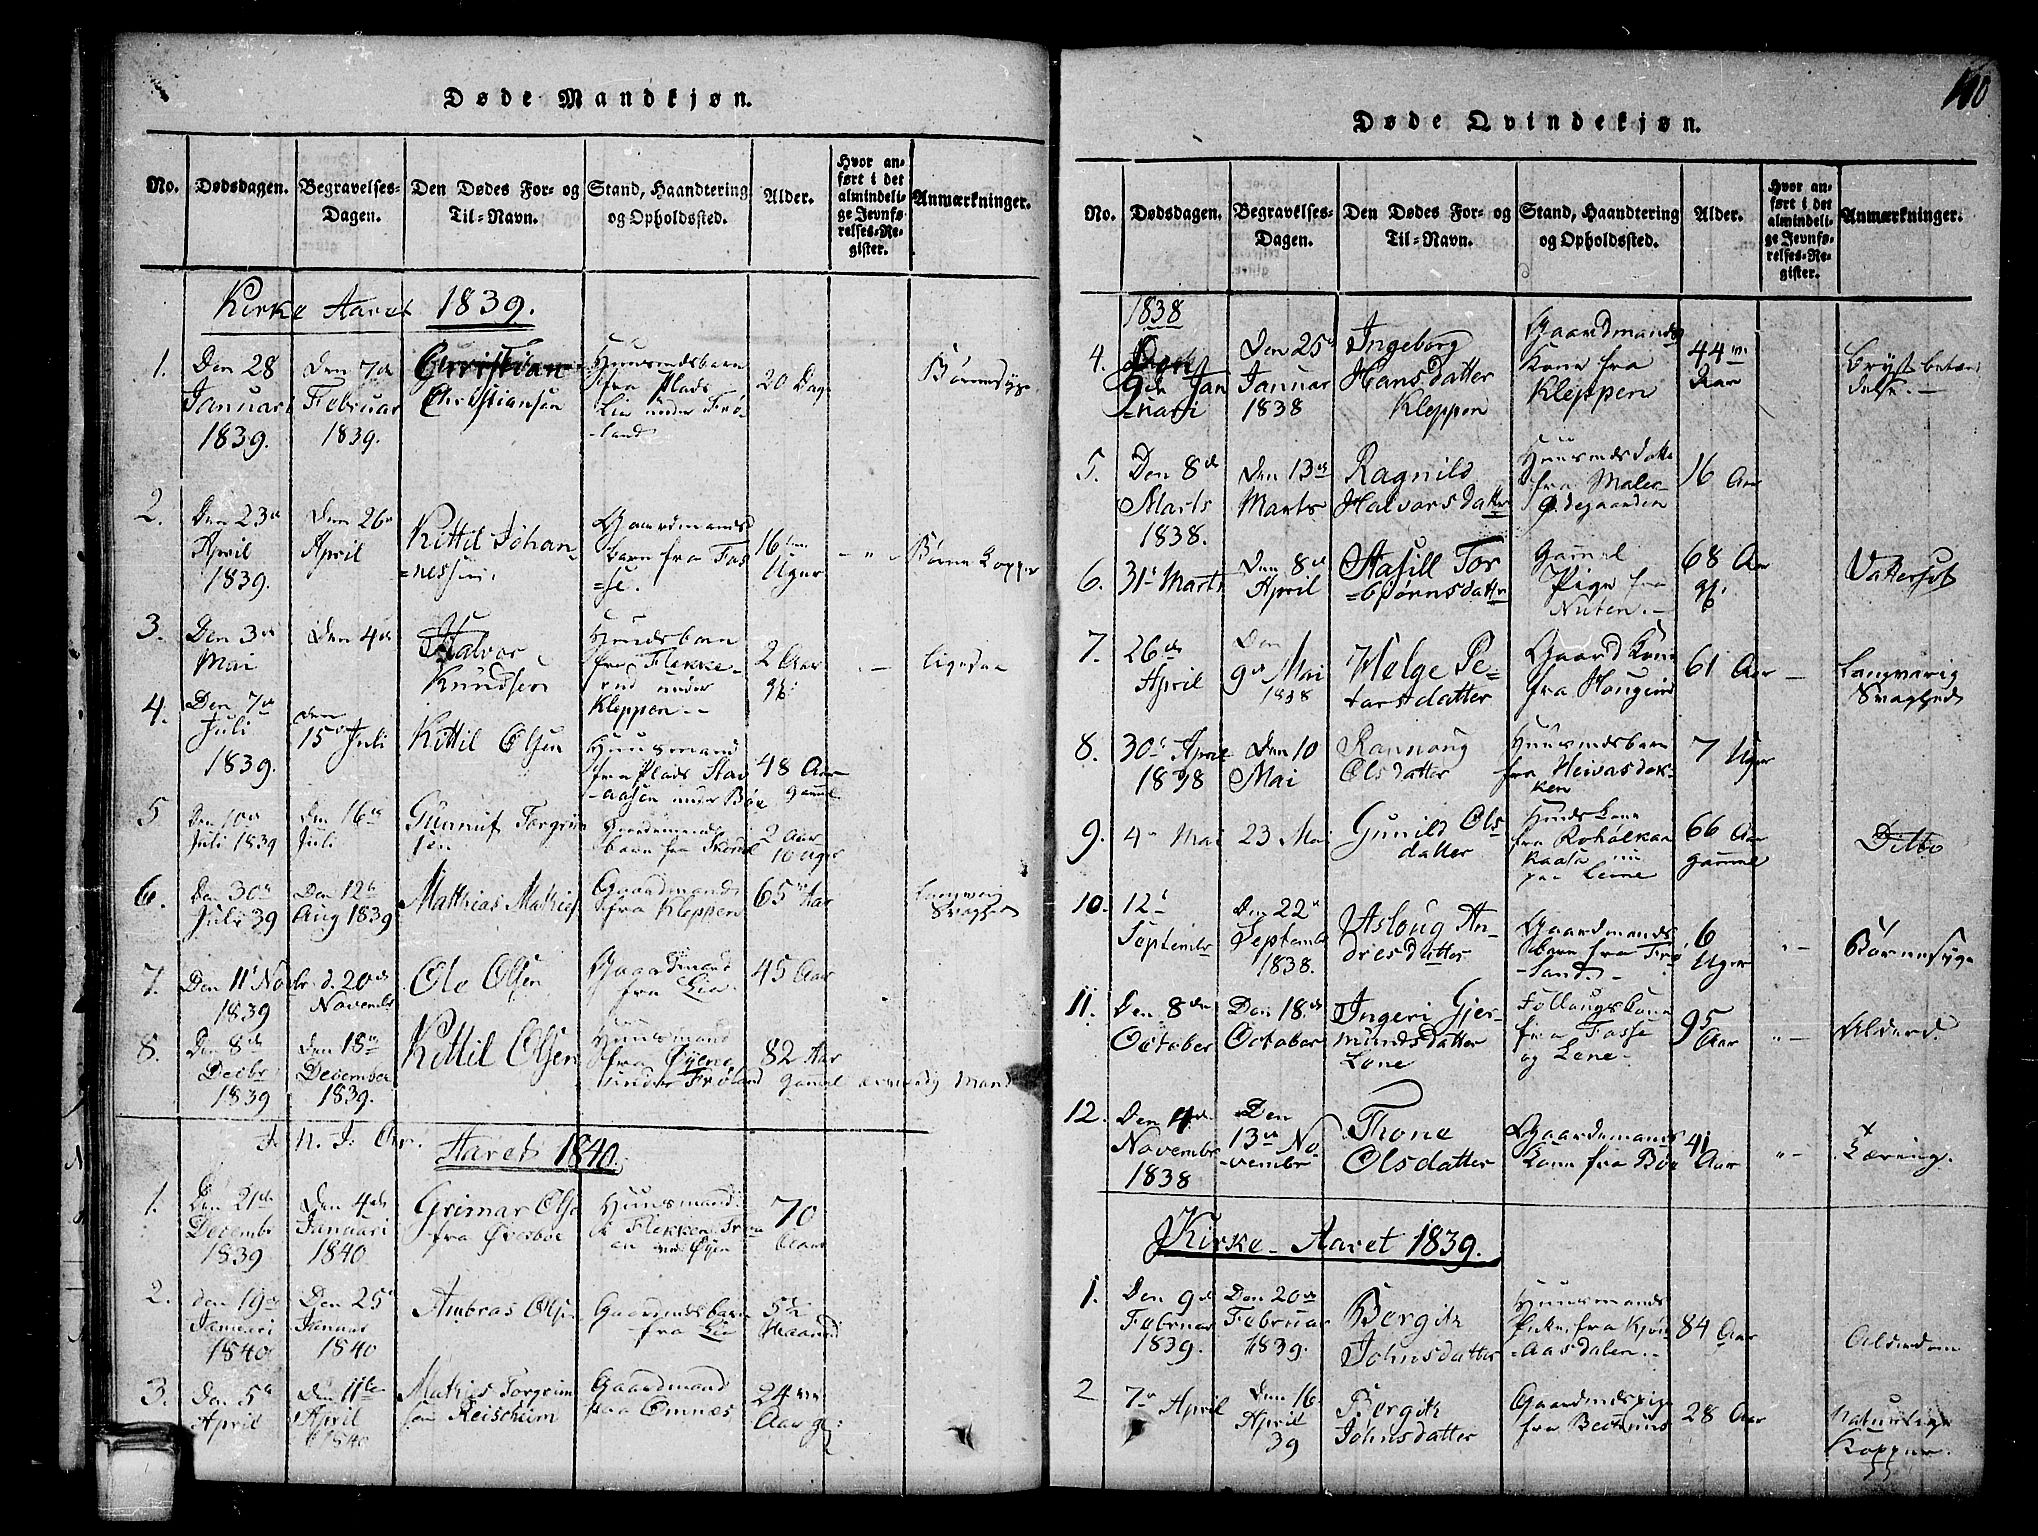 Døde Mandkjøn.
No. Dødsdagen. Begravelses-Dagen. Den Dødes For- og Til-Navn. Stand, Haandtering og Opholdssted. Alder. Hvor anført i det almindelige Jevnførelses-Register. Anmærkninger.
Kirke Aaret 1839.
1. Den 28 Januari 1839. Den 7de Februar 1839. Christian Christiansen fra Plads Lia under Frøland 20 Dage
2. Den 23de April 1839. Den 26de April Kittil Johannessen. Gaardmands barn fra Fosse. 16ten Uger Børne Kopper
3. Den 3de Mai Den 4de Halvor Knudsen fra Flekkerud under Kleppen.- 2 Aar gl: Ligedan
4. Den 7de Juli 1839. den 15de Juli Kittil Olsen Huusmand fra Plads under Bøe 48 Aar gammel
5 Den 10de Juli 1839 Den 16de Juli Gunnuf Torgrimsen barn fra 2 Aar 10 Uger
6. Den 30te Juli 39 Den 12te Aug 1839 Mathias Mathies Gaardmand fra Kleppen 65 Aar Langvarig Svaghed
7. Den 11te Novbr 1839 d. 20de Novemb Ole Olsen Gaardmand fra Lia 45 Aar
8. Den 8de Decbr 1839 Den 18de December 1839. Kittil Olsen Huusmand fra Øyene under Frøland 82 Aar gammel Mand
Aaret 1840.
1. Den 21de Decembr 1839 Den 4de Januari 1840 Greimar Olse fra Øverbøe Huusmand 70 Aar
2. den 19de Januari 1840 Den 25de Januar 1840 Ambros Olse Gaardmandsbarn fra Lia 5½ Maaned
3. Den 5te April Den 11te April 1840 Mathis Torgrimsen Reischum Gaardmand fra Omnes 24 Aar gl:
110
Døde Qvindekjøn.
No. Dødsdagen. Begravelses-Dagen. Den Dødes For- og Til-Navn. Stand, Haandtering og Opholdssted. Alder. Hvor anført i det almindelige Jevnførelses-Register. Anmærkninger.
1838
4. 9de Januari Den 25de Januar 1838 Ingeborg Hansdatter Kleppen Gaardmands Kone fra Kleppen 44 Aar Bryst betændelse.-
5. Den 8de Marts 1838. Den 13de Marts Ragnild Halvorsdatter fra 16 Aar
6. 31te Marts Den 8de April Torbjørnsdatter Gammel Pige fra Nuten.- 68 Aar gl. Vattersot
7. 26de April Den 9de Mai 1838 Helge Petersdatter Gaard Kone fra 61 Aar - Langvarig Svaghed
8. 30te April 1838 Den 10 Mai Rannoug Olsdatter Huusmandsbarn fra 7 Uger
9. 4de Mai 23 Mai Gunild Olsdatter fra 66 Aar gammel Ditto
10. 12te September Den 22de Septembr 1838. Asloug Andresdatter Gaardmands barn fra Frøland.- 6 Uger Børnesyge
11. Den 8de October Den 18de October Ingeri Gjermundsdatter Lone fra Fosse og Lene- 95 Aar Alderd.
12. Den 4de Novembr 1838 Den 13de Novembr Thone Olsdatter Gaardmands Kone fra Bøe 41 Aar Tæring.
Kirke-Aaret 1839.
1. Den 9de Februar 1839. Den 20de Februar 1839. Bergith Johnsdatter Huusmands fra 84 Aar Alderdom
2 7de April Den 16 April 39 Bergith Johnsdatter Gaardmandspige fra 28 Aar Naturlige Kopper.